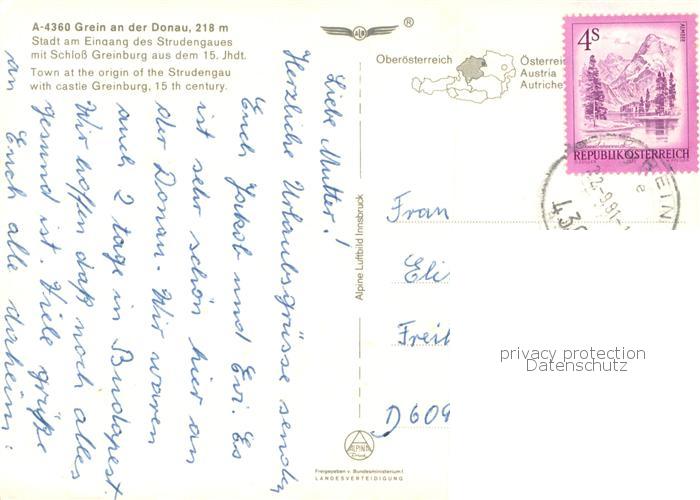 A-4360 Grein an der Donau, 218 m
Stadt am Eingang des Strudengaues
mit Schloß Greinburg aus dem 15. Jhdt.
Town at the origin of the Strudengau
with castle Greinburg, 15 th century.
ALB ®
Oberösterreich
Österrei
Austria
Autriche
4s
ALMSEE
REPUBLIK ÖSTERREICH
GREIN
22.-9.81-
e
43
Liebe Mutter!
Herzliche Urlaubsgrüsse senden
Euch Jakob und Evi. Es
ist sehr schön hier an
der Donau. Wir waren
auch 2 tage in Budapest.
Wir hoffen daß noch alles
gesund ist. Viele grüße
an Euch alle daheim.
Alpine Luftbild Innsbruck
Frau
Eli
Freit
D 609
privacy protection
Datenschutz
ALPINE
Druck
Freigegeben v. Bundesministerium f.
LANDESVERTEIDIGUNG